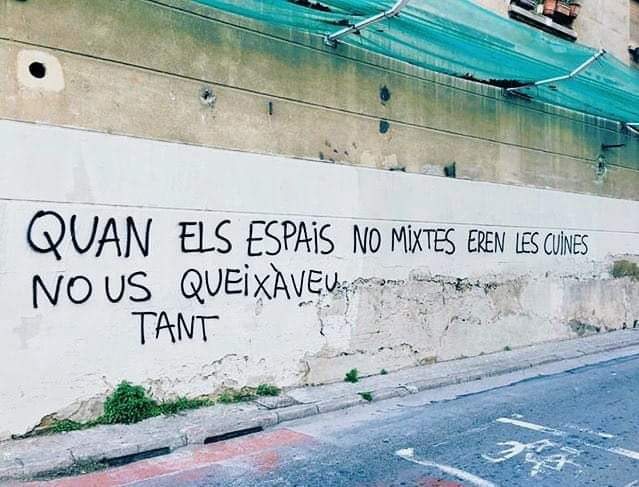 QUAN ELS ESPAIS NO MIXTES EREN LES CUINES
NO US QUEIXÀVEU
TANT